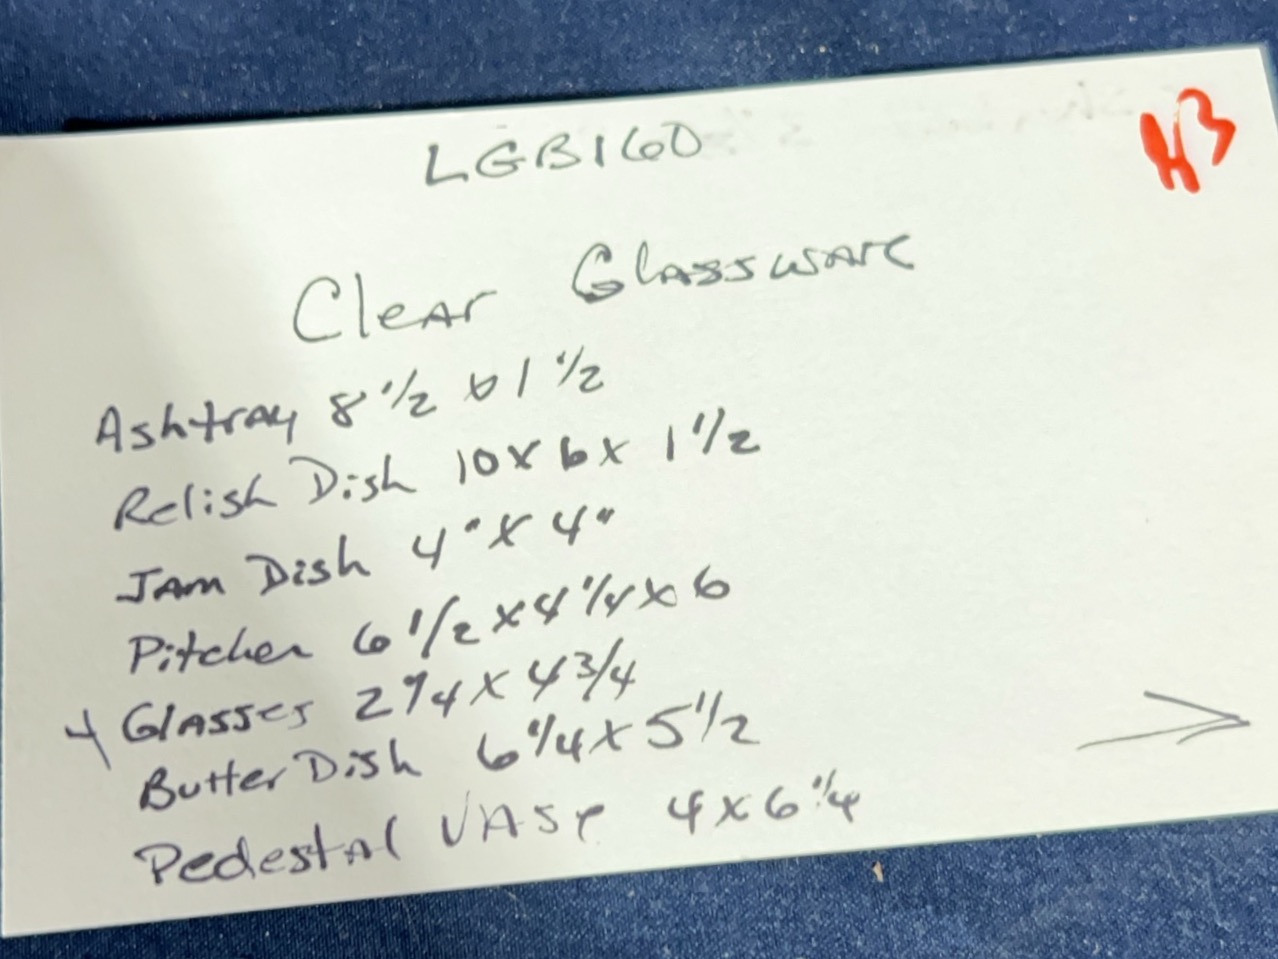 LGB160
Clear Glassware
Ashtray 8 1/2 x 1 1/2
Relish Dish 10 x 6 x 1 1/2
Jam Dish 4" x 4"
Pitcher 6 1/2 x 4 1/4 x 6
4 Glasses 2 x 4 3/4
Butter Dish 6 1/4 x 5 1/2
Pedestal Vase 4 x 6 1/4